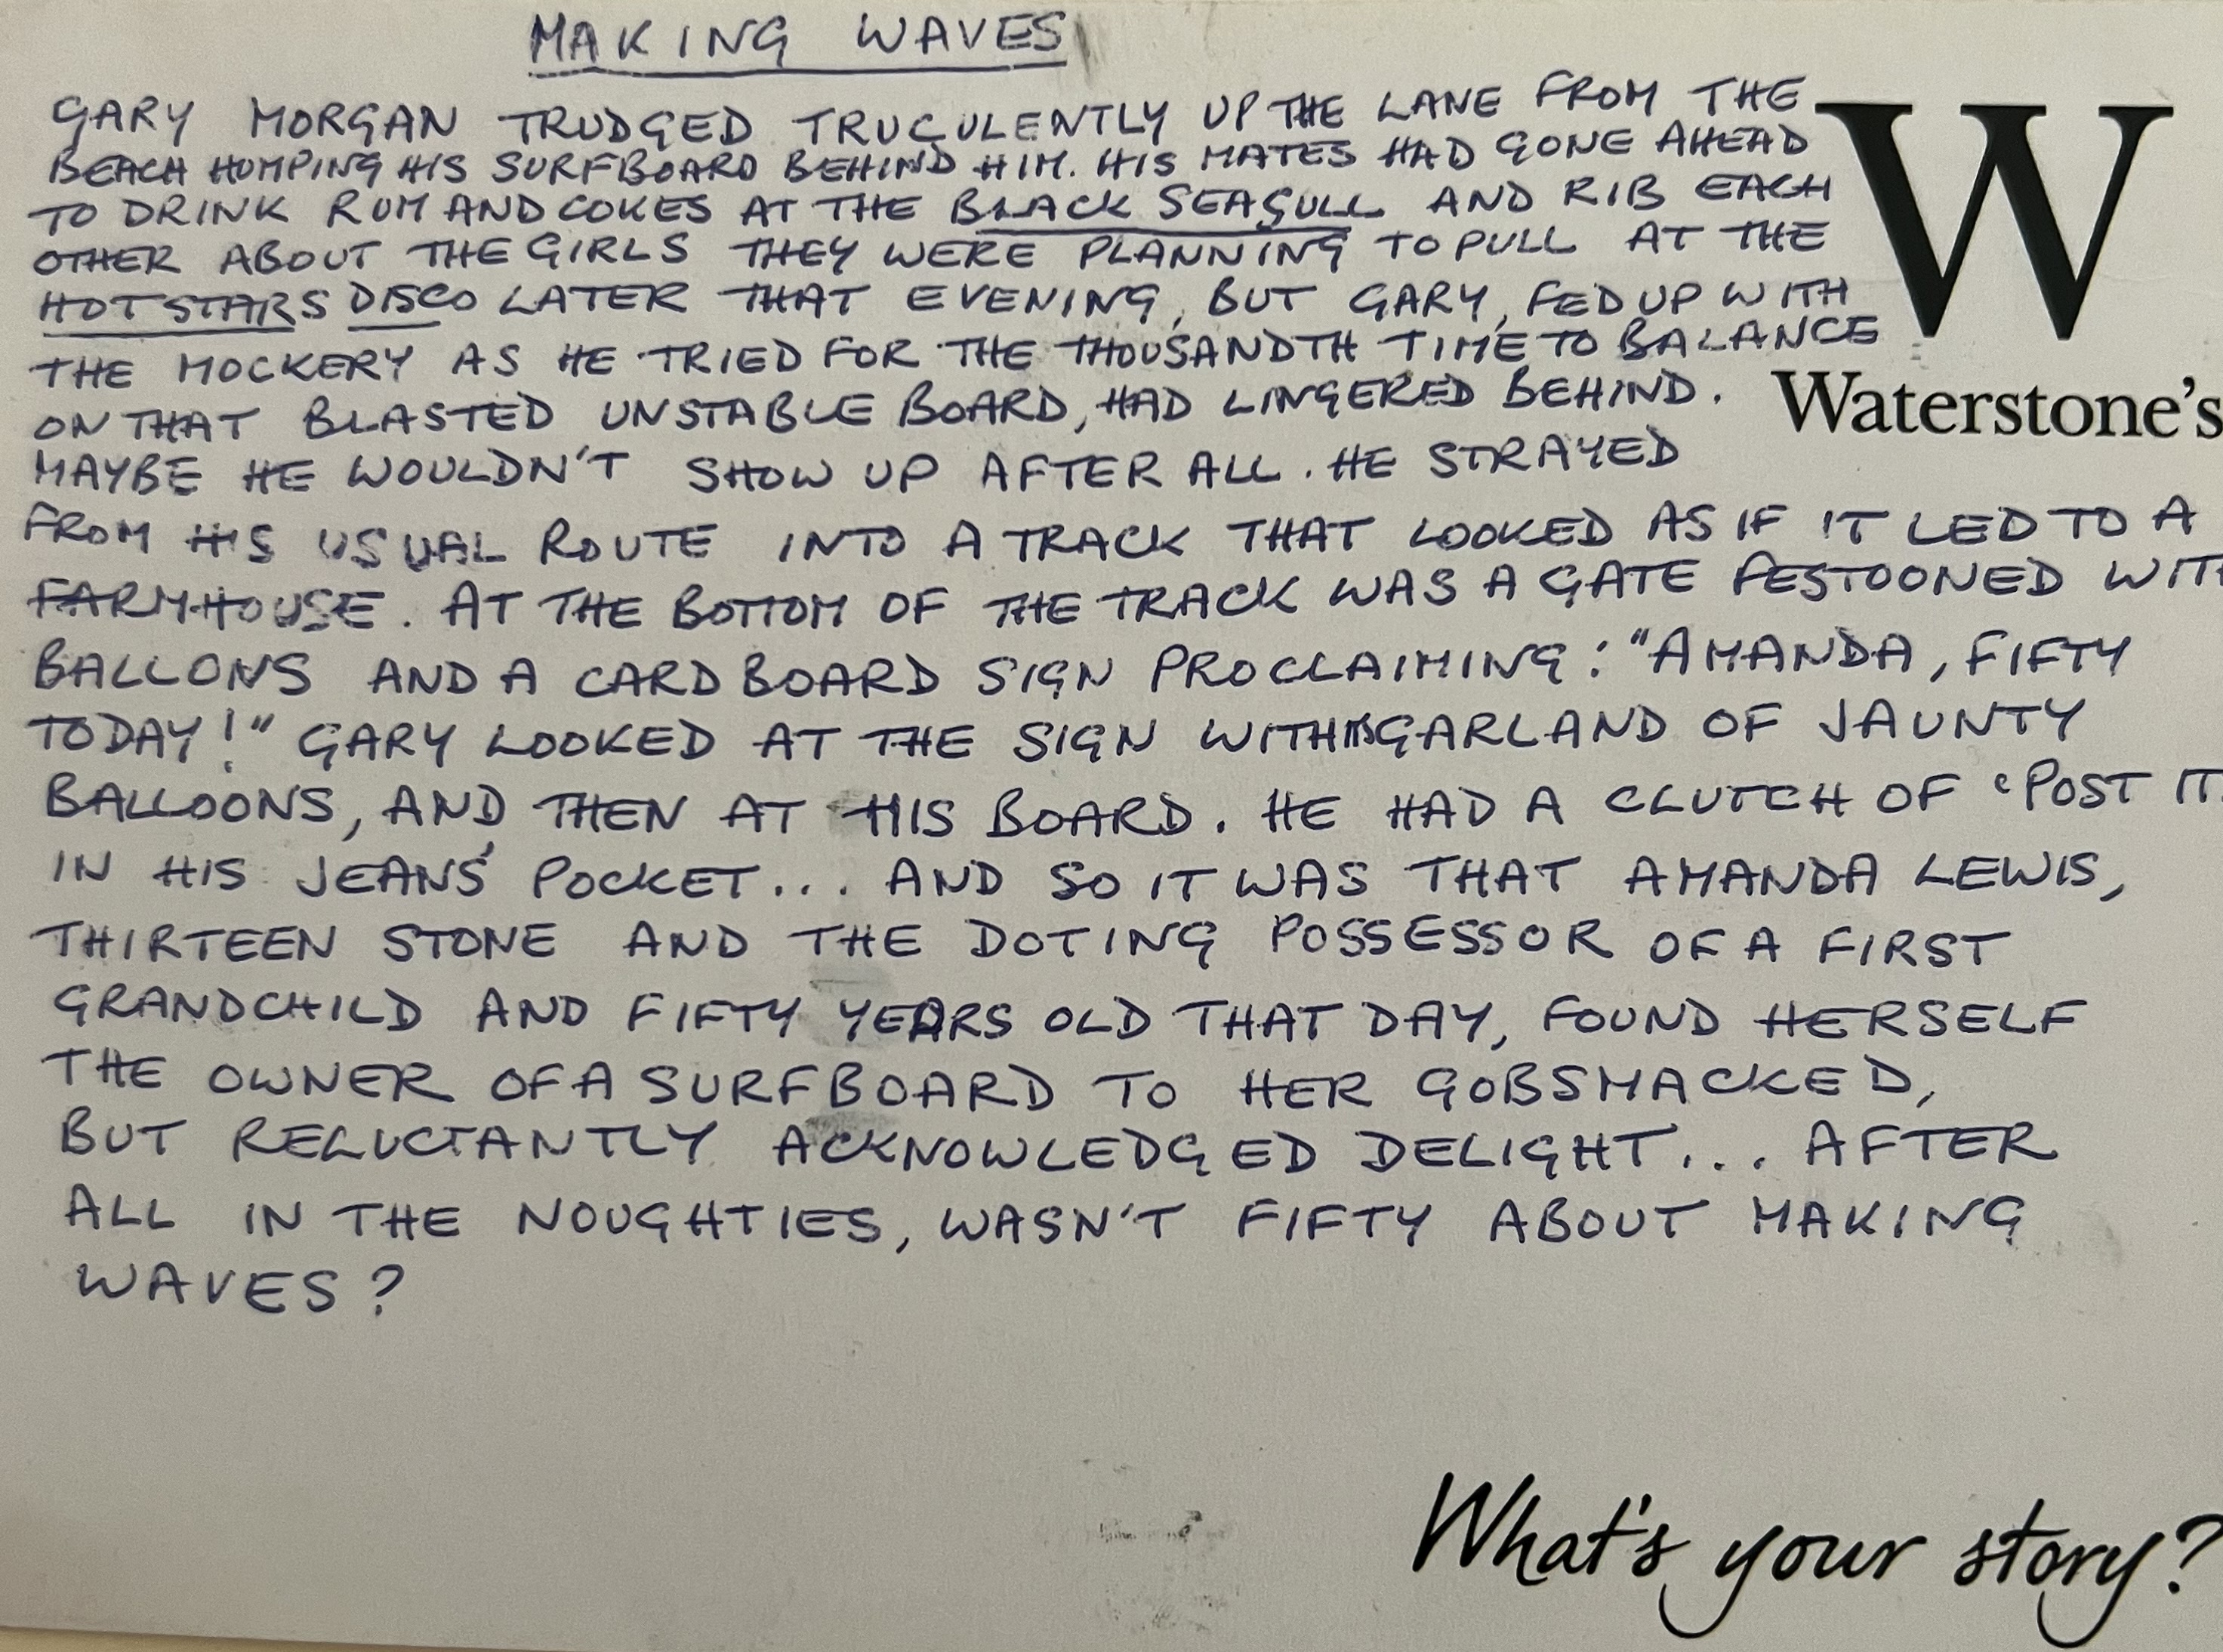 MAKING WAVES
GARY MORGAN TRUDGED TRUCULENTLY UP THE LANE FROM THE
BEACH HUMPING HIS SURFBOARD BEHIND HIM. HIS MATES HAD GONE AHEAD
TO DRINK RUM AND COKES AT THE BLACK SEAGULL AND RIB EACH
OTHER ABOUT THE GIRLS THEY WERE PLANNING TO PULL AT THE
HOT STARS DISCO LATER THAT EVENING, BUT GARY, FED UP WITH
THE MOCKERY AS HE TRIED FOR THE THOUSANDTH TIME TO BALANCE
ON THAT BLASTED UNSTABLE BOARD, HAD LINGERED BEHIND.
MAYBE HE WOULDN'T SHOW UP AFTER ALL. HE STRAYED
FROM HIS USUAL ROUTE INTO A TRACK THAT LOOKED AS IF IT LED TO A
FARMHOUSE. AT THE BOTTOM OF THE TRACK WAS A GATE FESTOONED WITH
BALLONS AND A CARDBOARD SIGN PROCLAIMING: "AMANDA, FIFTY
TODAY!" GARY LOOKED AT THE SIGN WITH ITS GARLAND OF JAUNTY
BALLOONS, AND THEN AT HIS BOARD. HE HAD A CLUTCH OF 'POST IT
IN HIS JEANS' POCKET... AND SO IT WAS THAT AMANDA LEWIS,
THIRTEEN STONE AND THE DOTING POSSESSOR OF A FIRST
GRANDCHILD AND FIFTY YEARS OLD THAT DAY, FOUND HERSELF
THE OWNER OF A SURFBOARD TO HER GOBSMACKED,
BUT RELUCTANTLY ACKNOWLEDGED DELIGHT... AFTER
ALL IN THE NOUGHTIES, WASN'T FIFTY ABOUT MAKING
WAVES?
W
Waterstone's
What's your story?